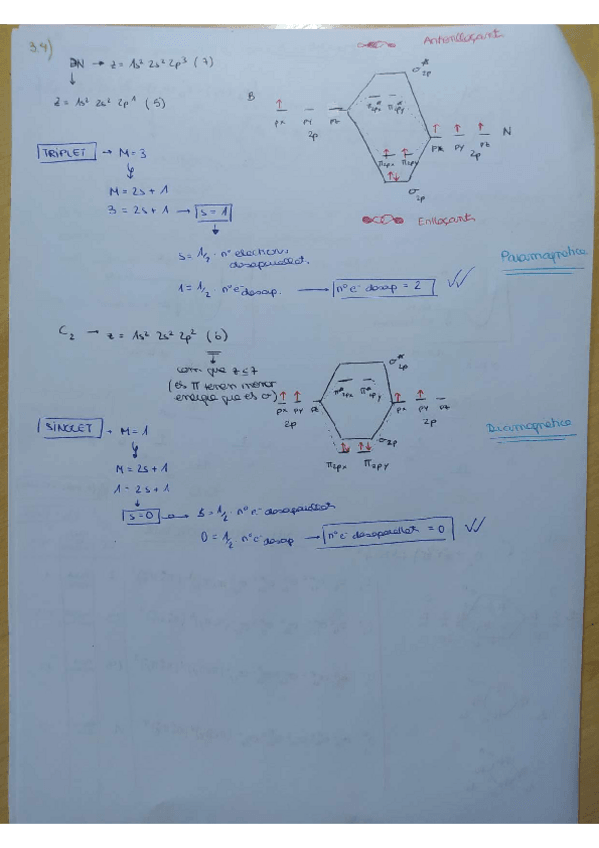 3.4)
BN → z = 1s² 2s² 2p³ (7)
z = 1s² 2s² 2p¹ (5)
Antienllaçant
σ*2p
π*2px π*2py
B
px py pz
2p
px py pz
2p
N
π2px π2py
σ2p
Enllaçant
TRIPLET → M = 3
M = 2s + 1
3 = 2s + 1 → s = 1
s = 1/2 · nº electrons desaparellat.
1 = 1/2 · nº e⁻ desap. → nº e⁻ desap = 2
Paramagnètica
C₂ → z = 1s² 2s² 2p² (6)
com que z ≤ 7
(es π tenen menor
energia que es σ)
σ*2p
π*2px π*2py
px py pz
2p
px py pz
2p
σ2p
π2px π2py
SINGLET → M = 1
M = 2s + 1
1 = 2s + 1
s = 0 → s = 1/2 · nº e⁻ desaparellat
0 = 1/2 nº e⁻ desap → nº e⁻ desaparellat = 0
Diamagnètica